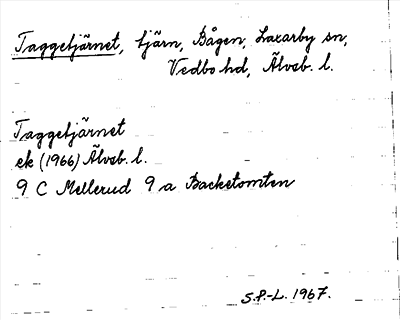 Taggetjärnet, tjärn, Bågen, Laxarby sn,
Vedbo hd, Älvsb. l.
Taggetjärnet
ek (1966) Älvsb. l.
9 C Mellerud 9 a Backetomten
S.P.-L. 1967.